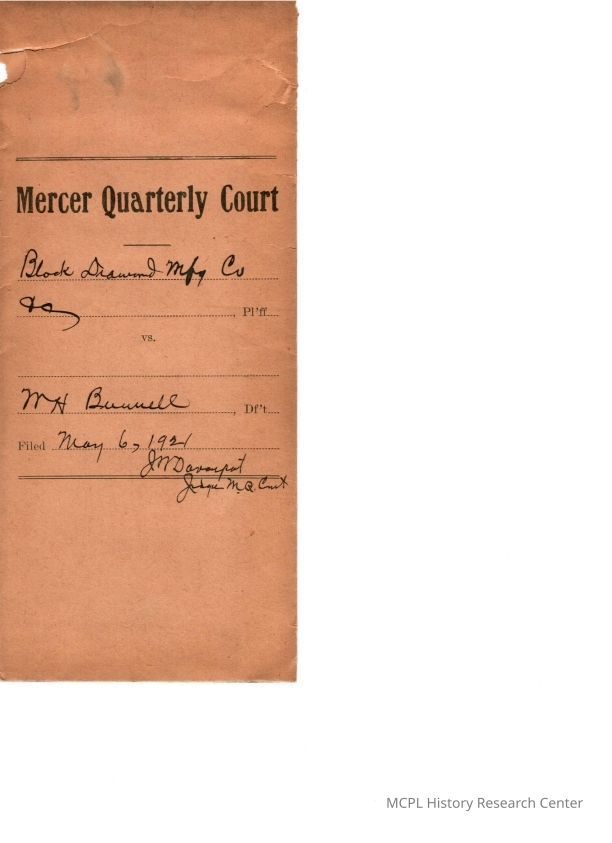 Mercer Quarterly Court
Block Diamond Mfg Co
, Pl'ff
vs.
W H Bunnell , Df't.
Filed May 6, 1921
J W Davenport
Judge M. Q. Court
MCPL History Research Center